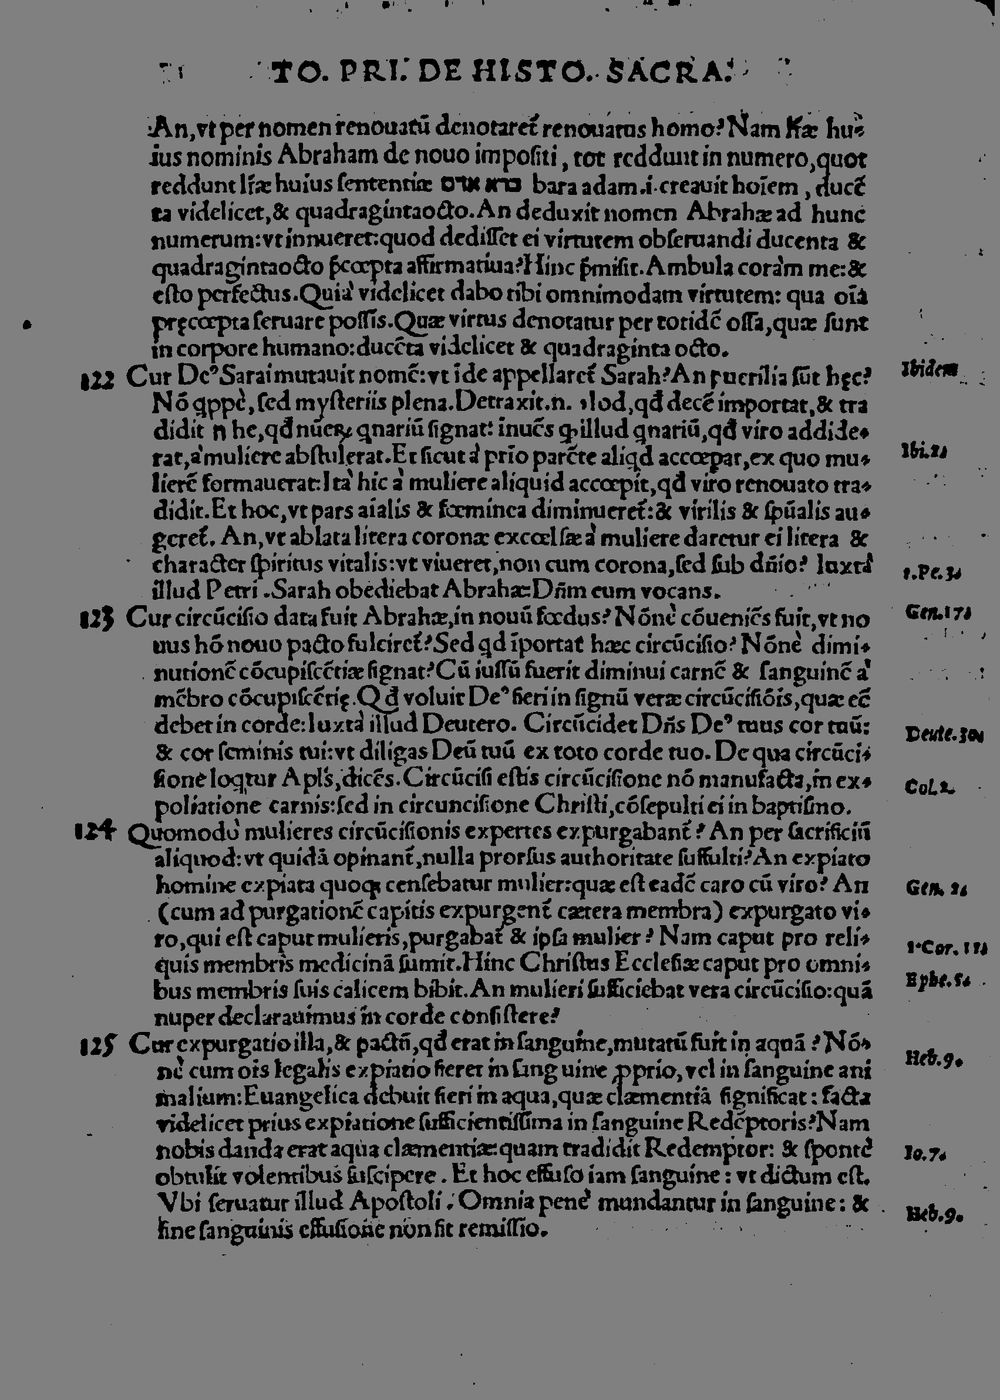 TO. PRI. DE HISTO. SACRA.
An, vt per nomen renouatũ denotaret̃ renouatus homo? Nam lr̃æ hu⸗
ius nominis Abraham de nouo impositi, tot reddunt in numero, quot
reddunt lr̃æ huius sententiæ ברא אדם bara adam.i.creauit hoĩem, ducẽ
ta videlicet, & quadragintaocto. An deduxit nomen Abrahæ ad hunc
numerum: vt innueret: quod dedisset ei virtutem obseruandi ducenta &
quadragintaocto p̃cœpta affirmatiua? Hinc p̃misit. Ambula coràm me: &
esto perfectus. Quià videlicet dabo tibi omnimodam virtutem: qua oĩa
pręcœpta seruare possis. Quæ virtus denotatur per totidẽ ossa, quæ sunt
in corpore humano: ducẽta videlicet & quadraginta octo.
122 Cur Deꝰ Sarai mutauit nomẽ: vt ĩde appellaret̃ Sarah? An puerilia sũt hęc? Ibidem
Nõ qppè, sed mysteriis plena. Detraxit.n. י Iod, qd̃ decẽ importat, & tra
didit ה he, qd̃ nũerꝝ qnariũ signat: inuẽs ꝙ illud qnariũ, qd̃ viro addide⸗
rat, à muliere abstulerat. Et sicut à prĩo parẽte aliqd accœpat, ex quo mu⸗ Ibi.2.
lierẽ formauerat: Ità hic à muliere aliquid accœpit, qd̃ viro renouato tra⸗
didit. Et hoc, vt pars aĩalis & fœminea diminueret̃: & virilis & spũalis au⸗
geret̃. An, vt ablata litera coronæ excœlsæ à muliere daretur ei litera &
character spiritus vitalis: vt viueret, non cum corona, sed sub dñio? Iuxtà 1.Pe.3.
illud Petri. Sarah obediebat Abrahæ: Dñm eum vocans.
123 Cur circũcisio data fuit Abrahæ, in nouũ fœdus? Nõnè cõueniẽs fuit, vt no Gen.17.
uus hõ nouo pacto fulciret̃? Sed qd ĩportat hæc circũcisio? Nõnè dimi⸗
nutionẽ cõcupiscẽtiæ signat? Cũ iussũ fuerit diminui carnẽ & sanguinẽ à
mẽbro cõcupiscẽtię. Qd̃ voluit Deꝰ fieri in signũ veræ circũcisiõis, quæ eẽ
debet in corde: Iuxtà illud Deutero. Circũcidet Dñs Deꝰ tuus cor tuũ: Deute.30.
& cor seminis tui: vt diligas Deũ tuũ ex toto corde tuo. De qua circũci⸗
sione loqtur Apl̃s, dicẽs. Circũcisi estis circũcisione nõ manufacta, in ex⸗ Col.2.
poliatione carnis: sed in circuncisione Christi, cõsepulti ei in baptismo.
124 Quomodò mulieres circũcisionis expertes expurgabant̃? An per sacrificiũ
aliquod: vt quidã opinant̃, nulla prorsus authoritate suffulti? An expiato
homine expiata quoqꝫ censebatur mulier: quæ est eadẽ caro cũ viro? An Gen. 2.
(cum ad purgationẽ capitis expurgent̃ cætera membra) expurgato vi⸗
ro, qui est caput mulieris, purgabat̃ & ipsa mulier? Nam caput pro reli⸗ 1.Cor.11.
quis membris medicinã sumit. Hinc Christus Ecclesiæ caput pro omni⸗ Ephe.5.
bus membris suis calicem bibit. An mulieri sufficiebat vera circũcisio: quã
nuper declarauimus in corde consistere?
125 Cur expurgatio illa, & pactũ, qd̃ erat in sanguine, mutatũ fuit in aquã? Nõ⸗
nè cum oĩs legalis expiatio fieret in sanguine ꝓprio, vel in sanguine ani Heb.9.
malium: Euangelica debuit fieri in aqua, quæ clæmentiã significat: facta
videlicet prius expiatione sufficientissima in sanguine Redẽptoris? Nam
nobis danda erat aqua clæmentiæ: quam tradidit Redemptor: & spontè Io.7.
obtulit volentibus suscipere. Et hoc effuso iam sanguine: vt dictum est.
Vbi seruatur illud Apostoli. Omnia penè mundantur in sanguine: & Heb.9.
sine sanguinis effusione non fit remissio.